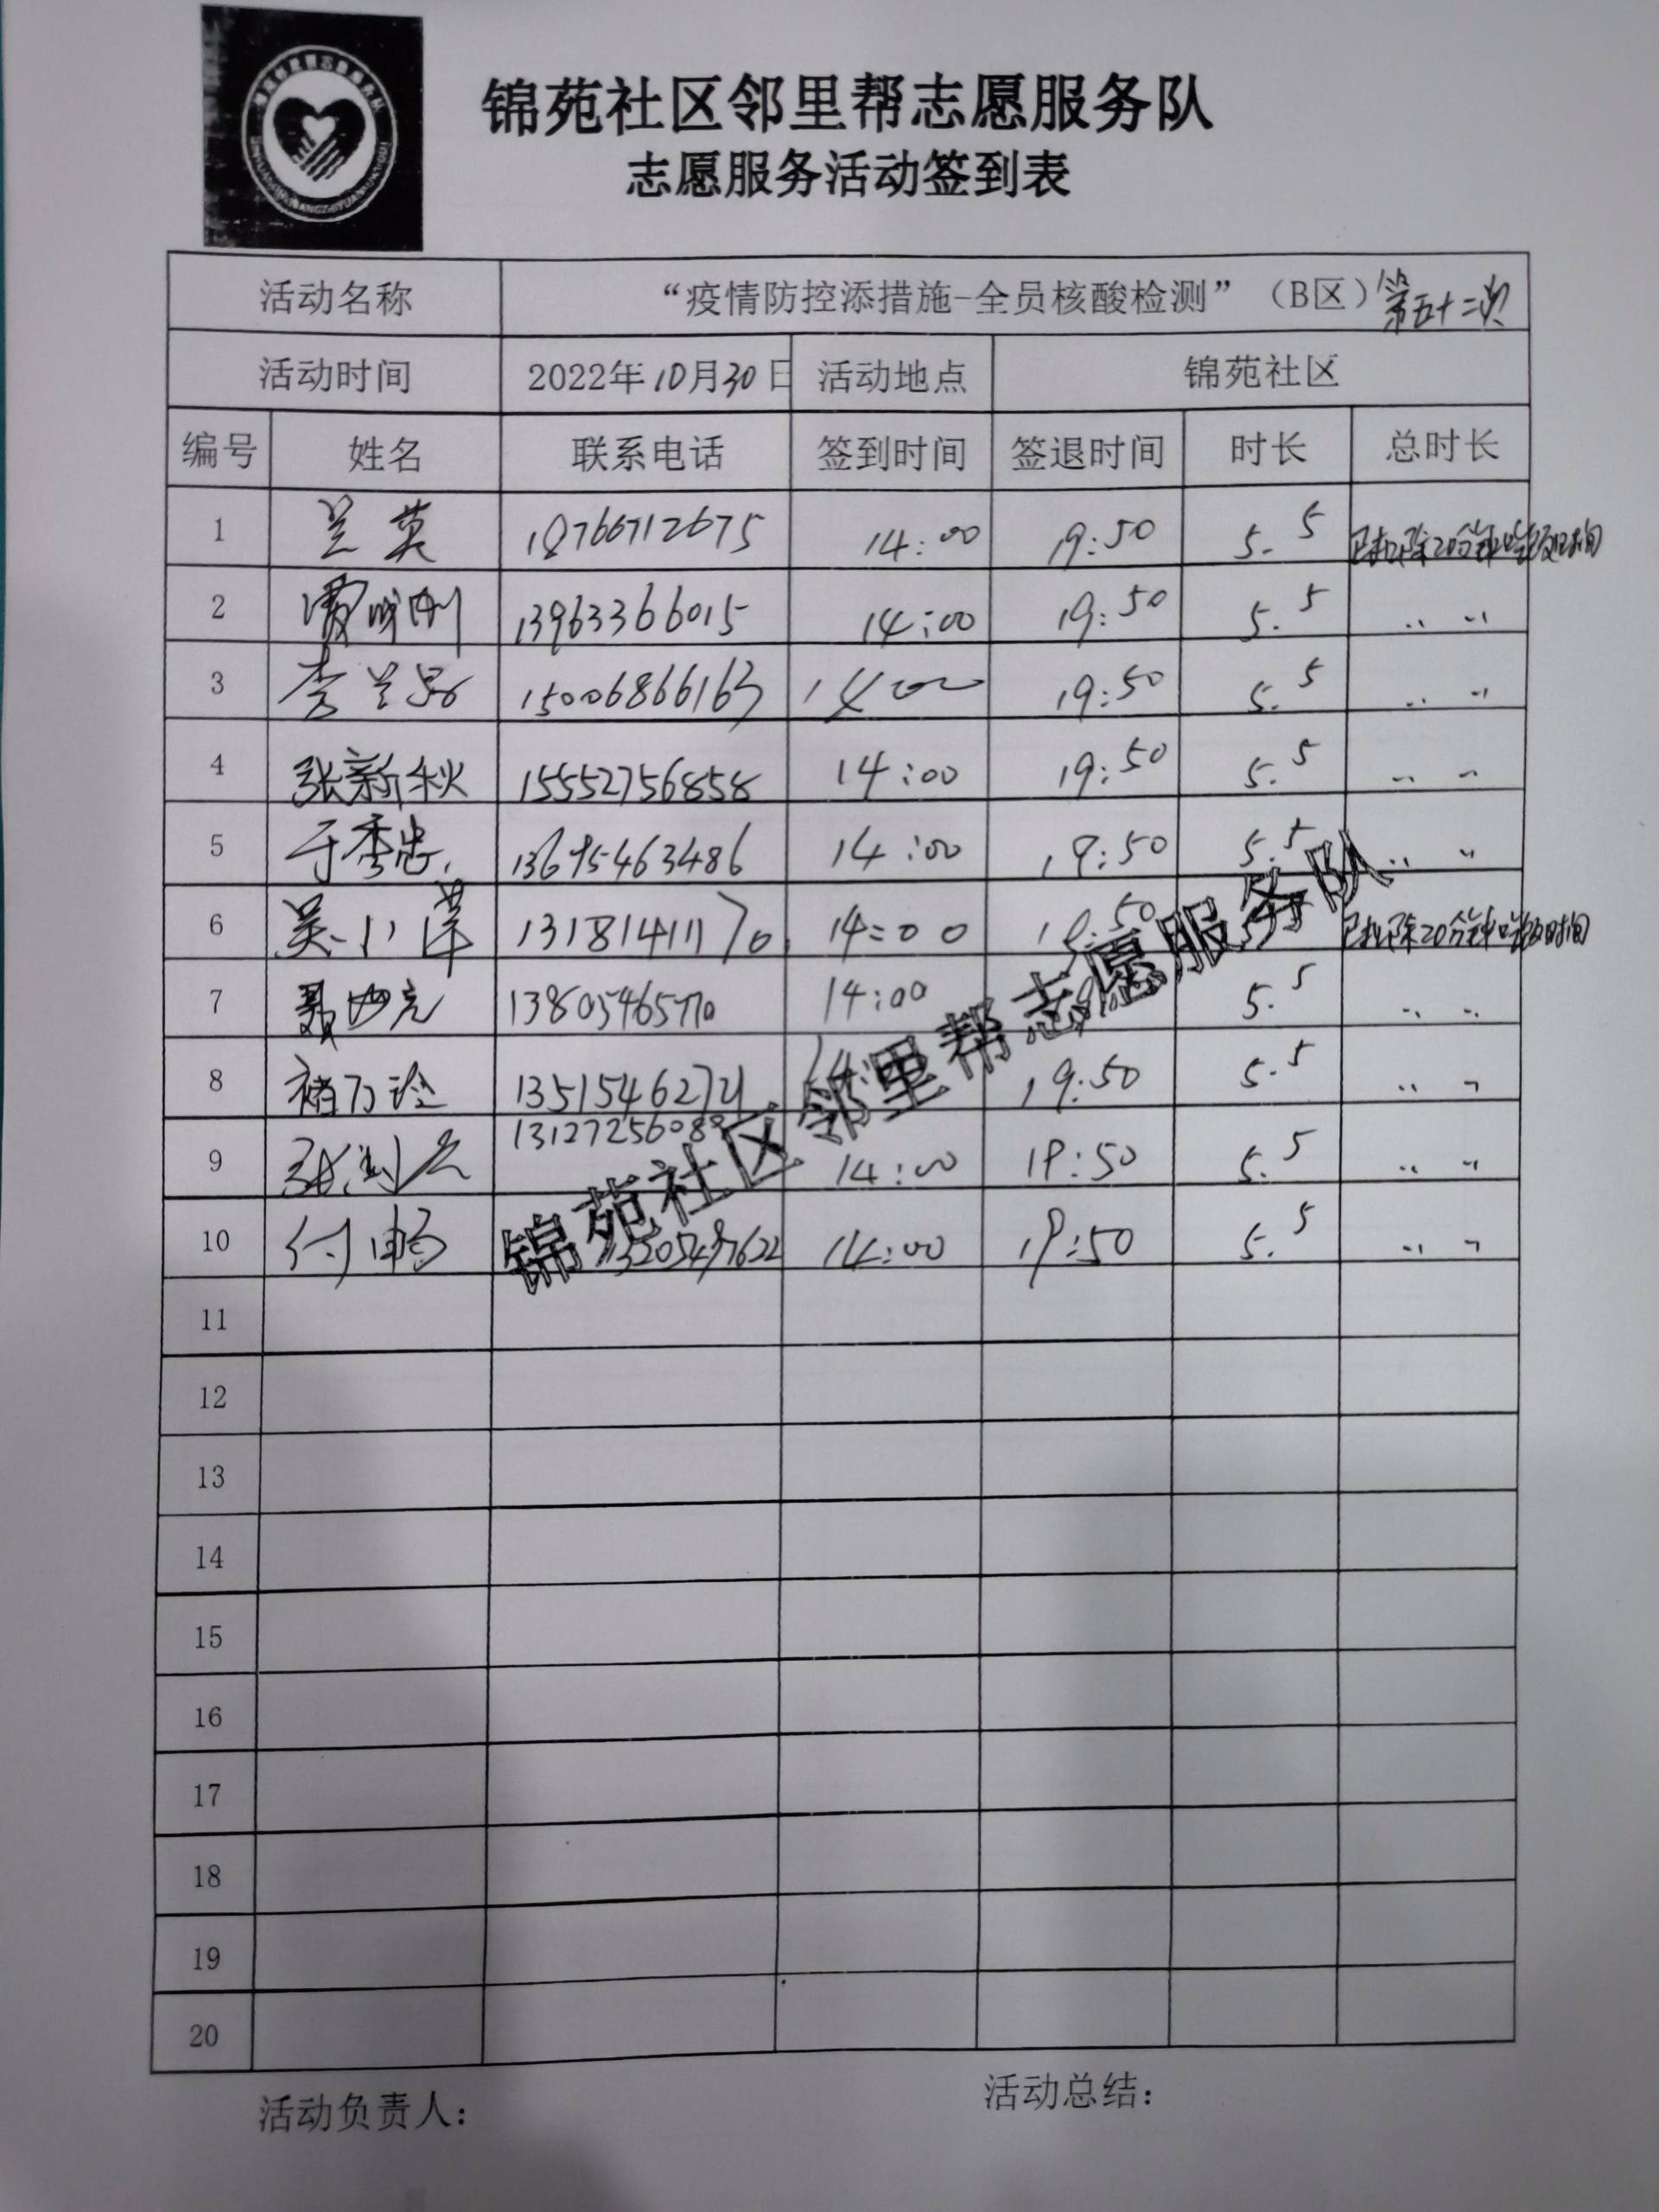 锦苑社区邻里帮志愿服务队
志愿服务活动签到表
活动名称 “疫情防控添措施-全员核酸检测”（B区）第五十二次
活动时间 2022年10月30日 活动地点 锦苑社区
编号 姓名 联系电话 签到时间 签退时间 时长 总时长
1 兰英 18766712675 14:00 19:50 5.5 已扣除20分钟吃饭时间
2 13963366015 14:00 19:50 5.5 ,, ,,
3 李兰 15006866163 1400 19:50 5.5 ,, ,,
4 张新秋 15552756858 14:00 19:50 5.5 ,, ,,
5 于秀忠 13695463486 14:00 19:50 5.5 ,, ,,
6 吴小萍 13181411170 14:00 19:50 已扣除20分钟吃饭时间
7 聂 13805465770 14:00 5.5 ,, ,,
8 褚万玲 13515462721 19:50 5.5 ,, ,,
9 张 14:00 19:50 5.5 ,, ,,
10 付畅 14:00 19:50 5.5 ,, ,,
锦苑社区邻里帮志愿服务队
11
12
13
14
15
16
17
18
19
20
活动负责人： 活动总结：